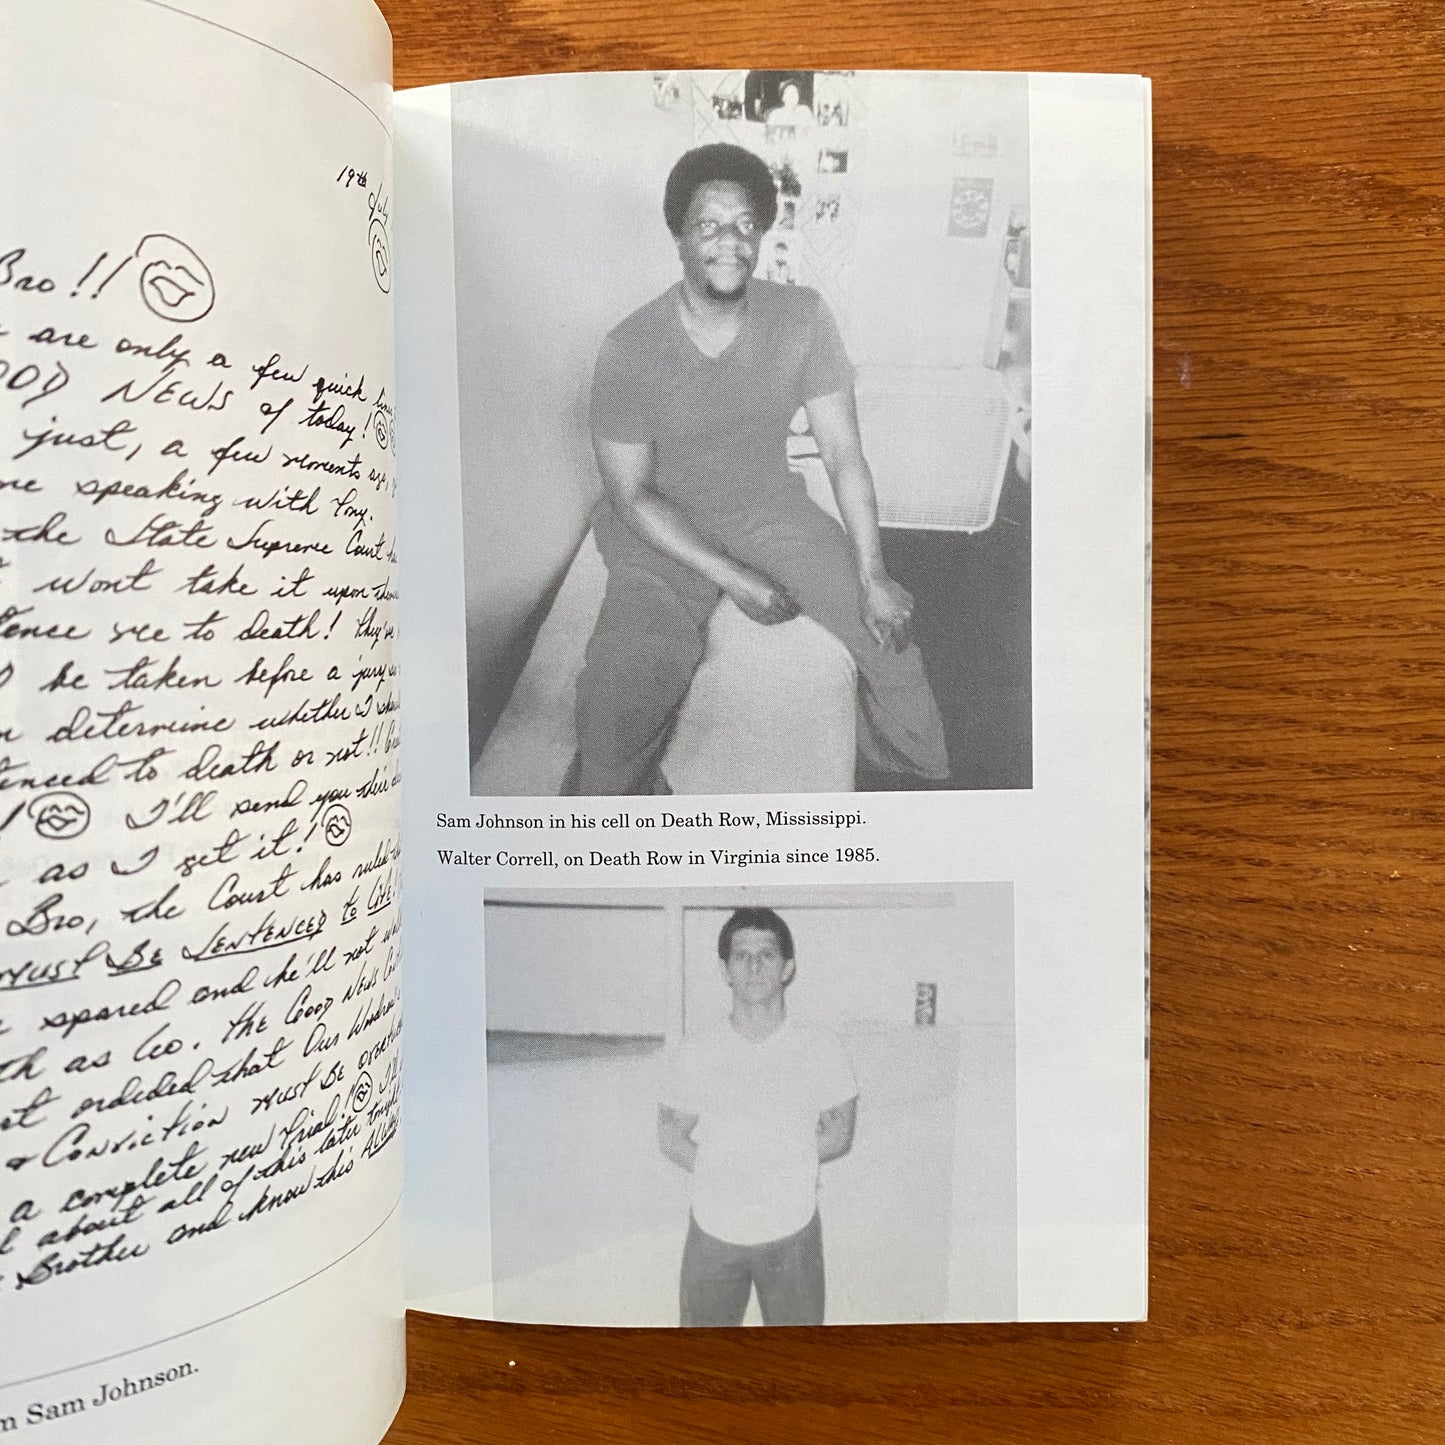 19th July
Bro!!
are only a few quick lines
GOOD NEWS of today!
just, a few moments ago,
me speaking with Tony.
the State Supreme Court
wont take it upon
me to death! They've
be taken before a jury
determine whether I
to death or not!!
I'll send you their
as I get it!
Bro, the Court has ruled
MUST BE SENTENCED to LIFE!
spared and he'll not
as Leo. THE GOOD NEWS
ordided that Our Woodrow's
& CONVICTION MUST BE
a complete new Trial! I'll
about all of this later tonight
Brother and know this
Sam Johnson.
Sam Johnson in his cell on Death Row, Mississippi.
Walter Correll, on Death Row in Virginia since 1985.